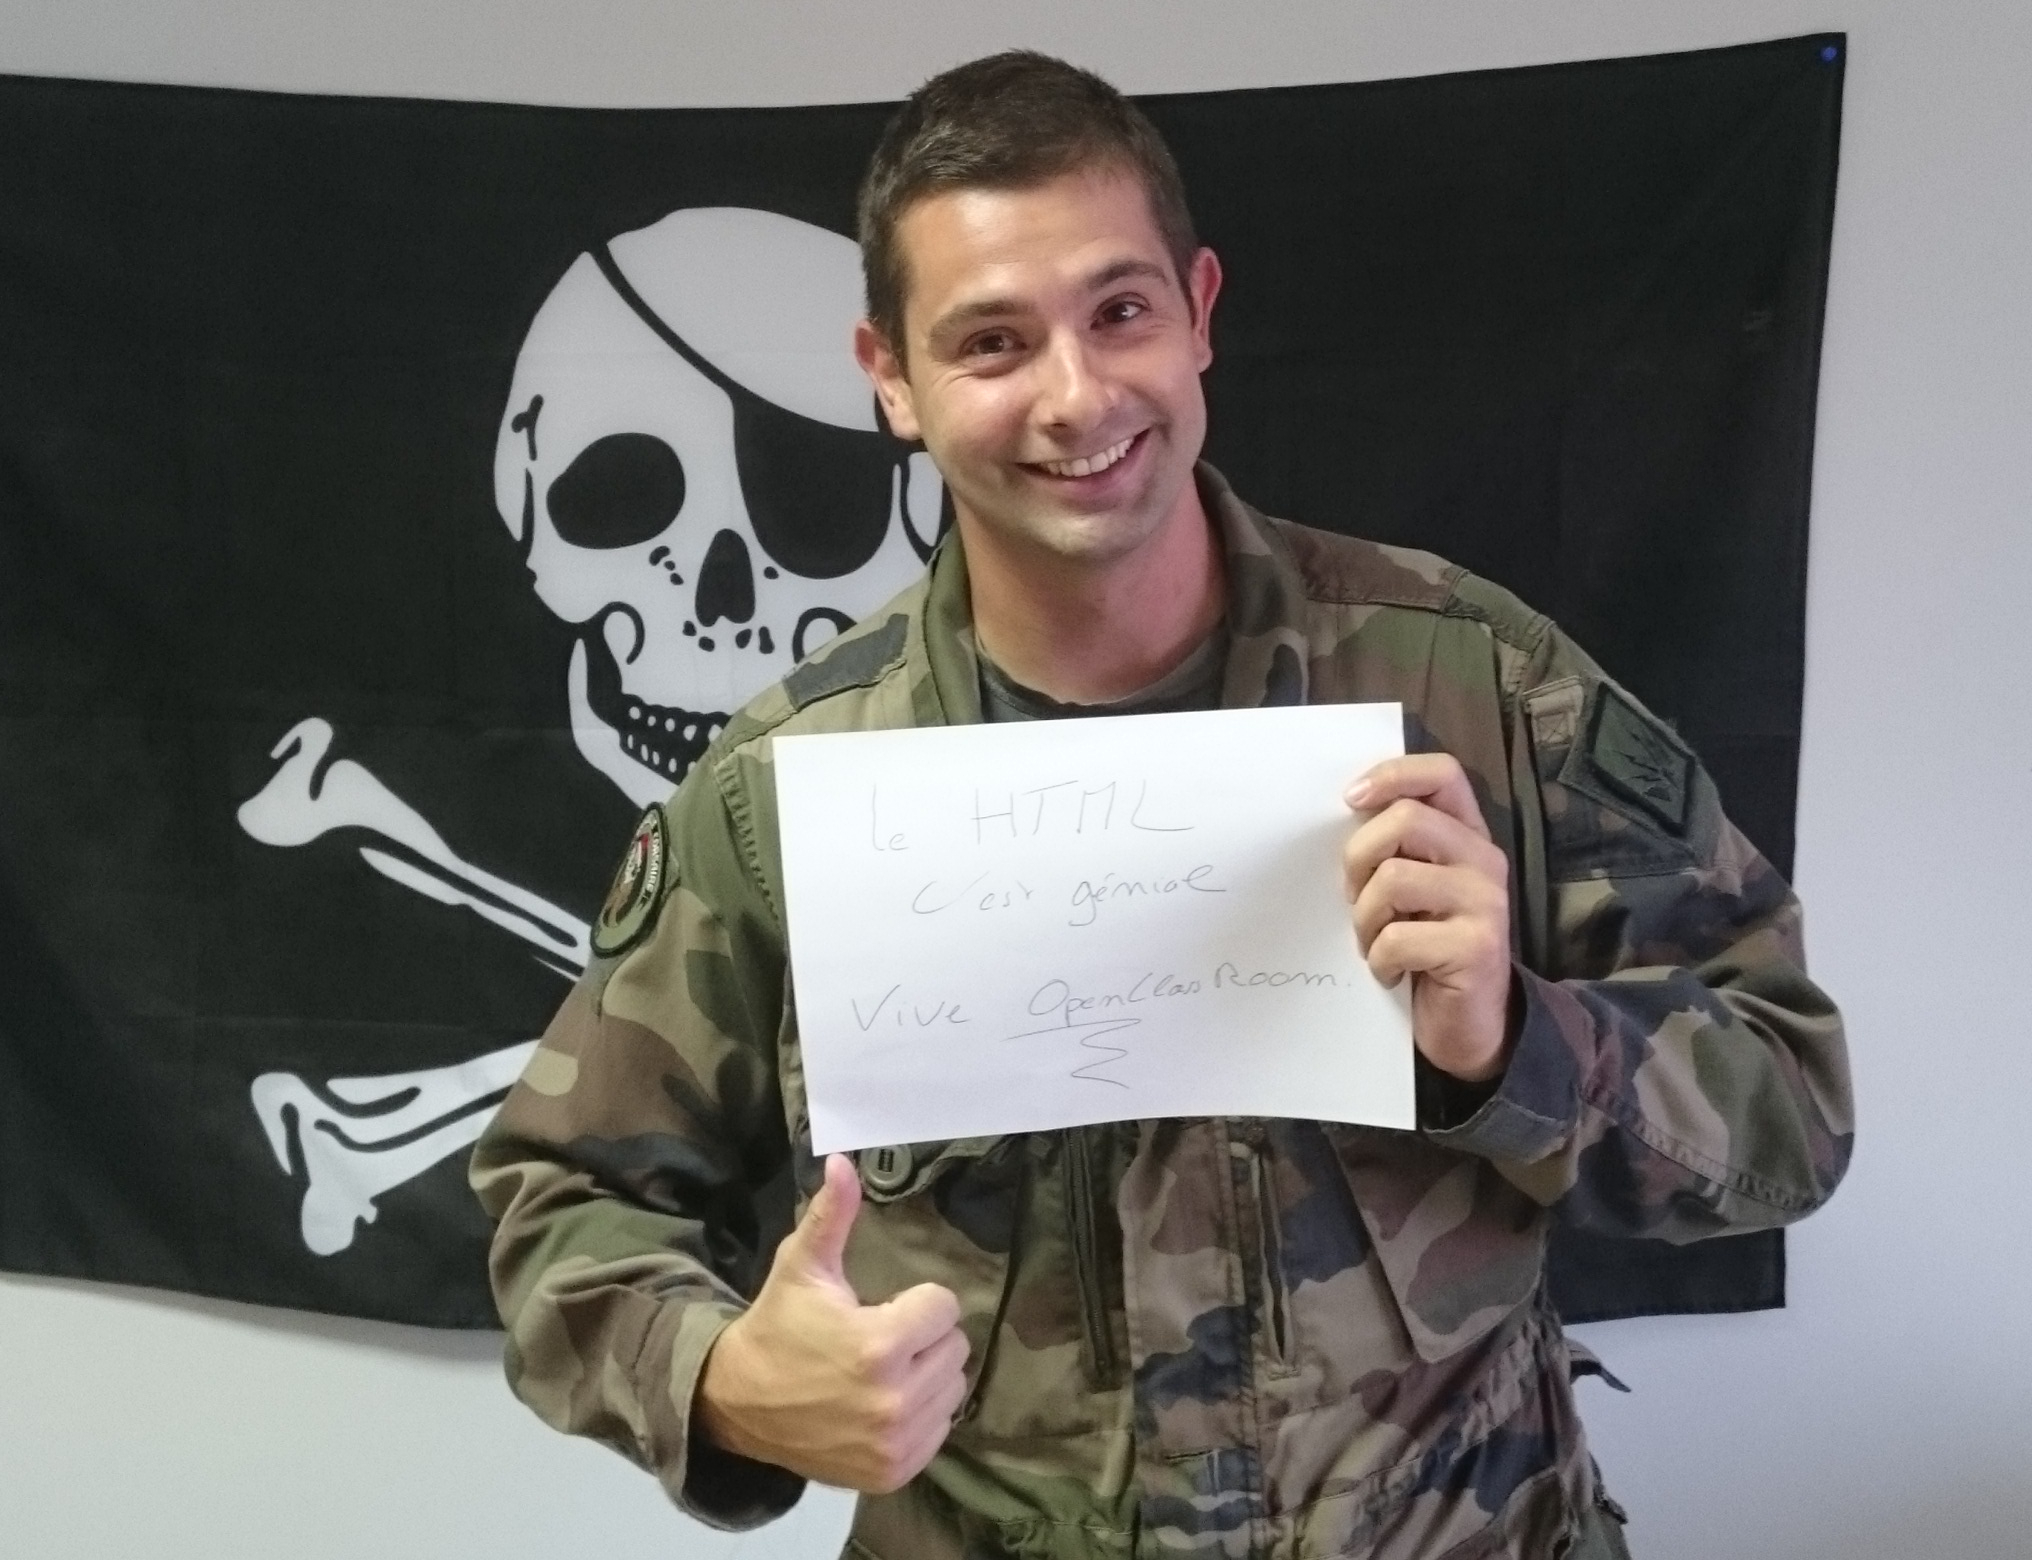 le HTML
C'est génial
Vive OpenClassRoom.